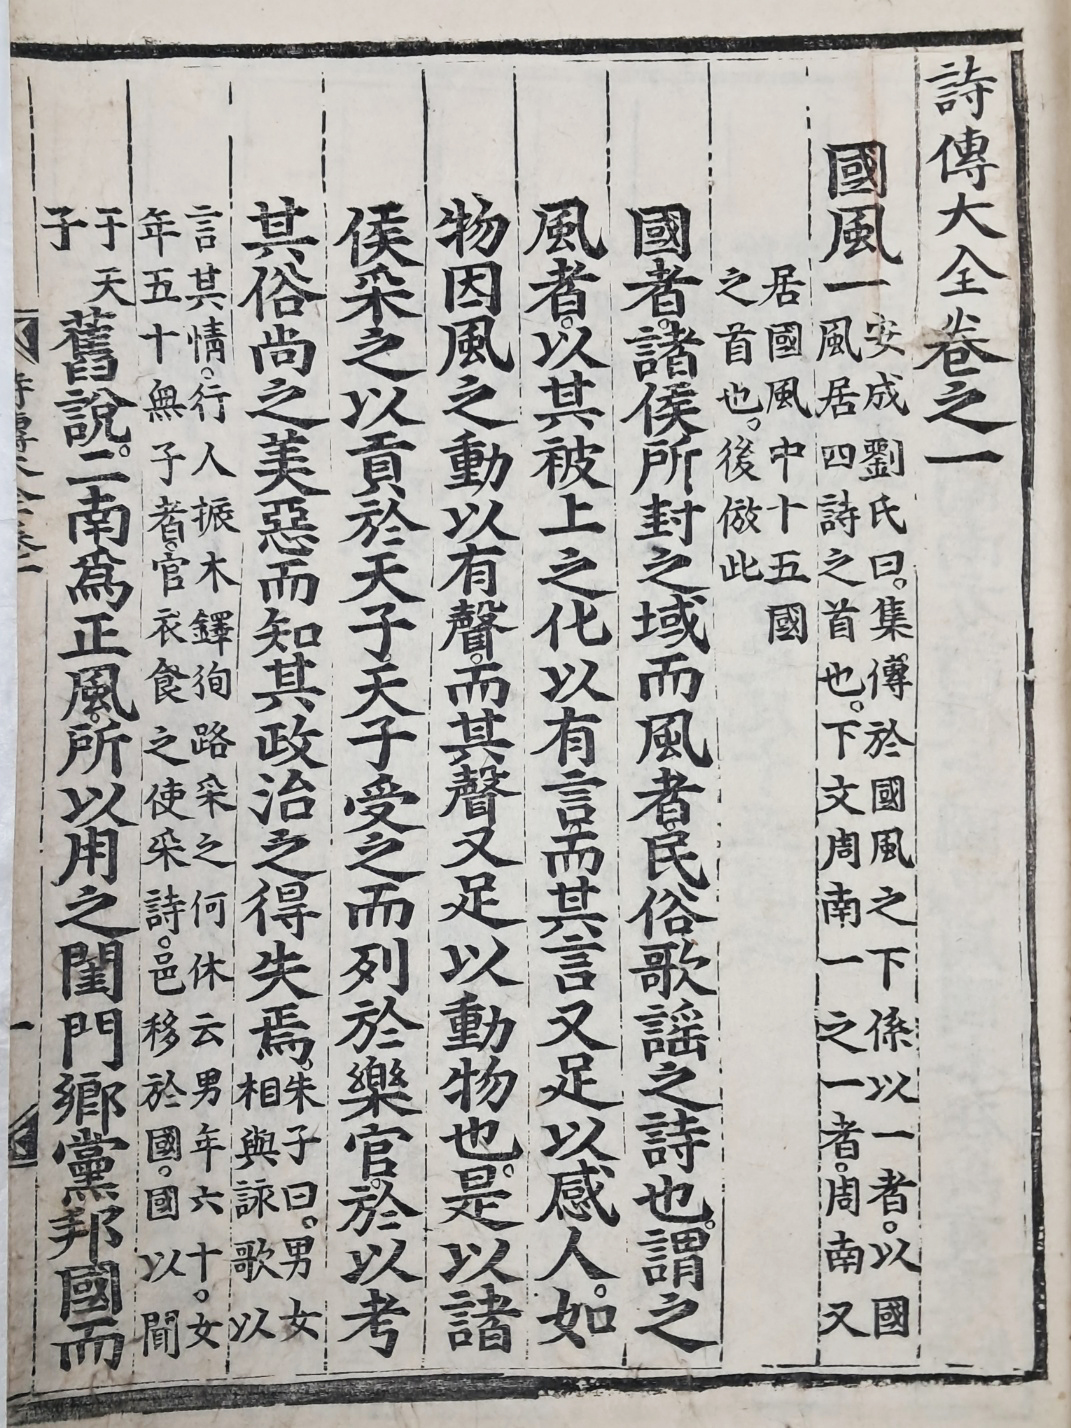 詩傳大全卷之一
國風一
安成劉氏曰集傳於國風之下係以一者以國
風居四詩之首也下文周南一之一者周南又
居國風中十五國
之首也後倣此
國者諸侯所封之域而風者民俗歌謠之詩也謂之
風者以其被上之化以有言而其言又足以感人如
物因風之動以有聲而其聲又足以動物也是以諸
侯采之以貢於天子天子受之而列於樂官於以考
其俗尚之美惡而知其政治之得失焉
朱子曰男女
相與詠歌以
言其情行人振木鐸徇路采之何休云男年六十女
年五十無子者官衣食之使采詩邑移於國國以聞
于天
子
舊說二南爲正風所以用之閨門鄉黨邦國而